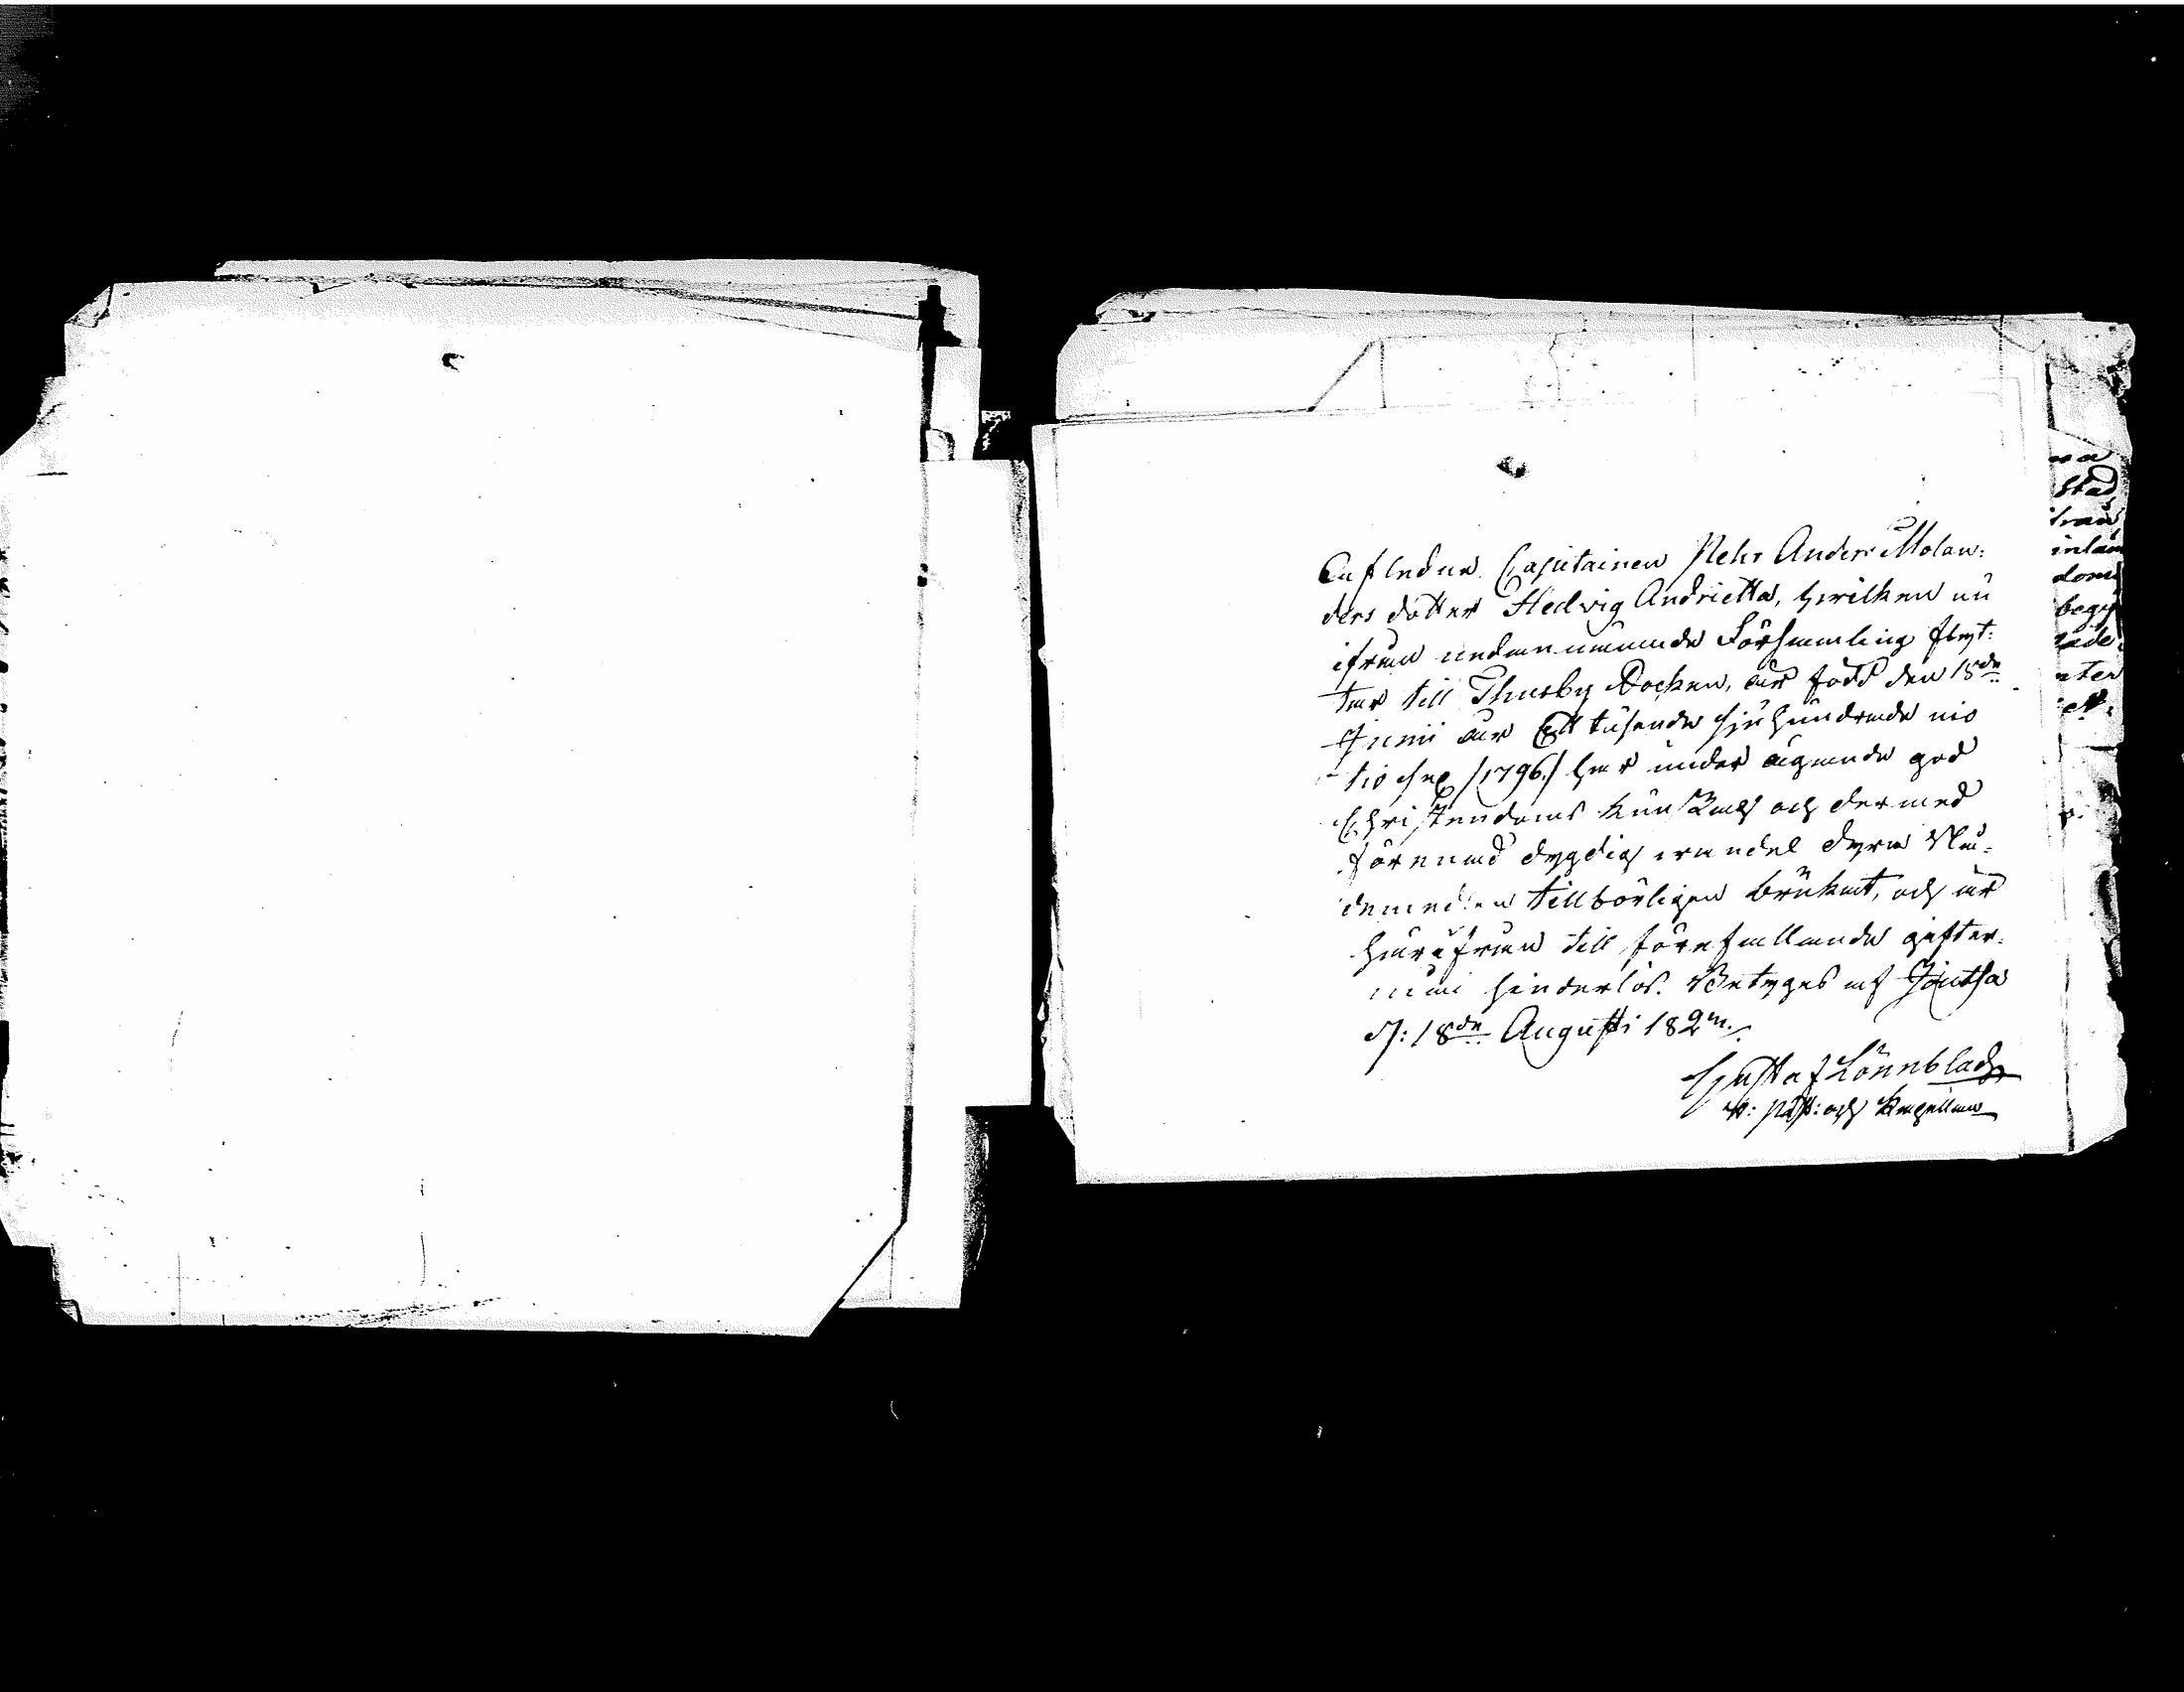 Afledne Capitainen Pehr Anders Molan:
ders dotter Hedvig Andrietta, hvilken nu
ifrån nedannämnde Församling flyt:
tar till Thusby Socken, är född den 15de
Junii år Ett tusende sju hundrade nio
tio sex /1796/ har under ägande god
Christendoms kunskap och dermed
förenad dygdig vandel dyra Nå:
demedlen tillbörligen brukat, och är
härifrån till förefallande gifter:
mål hinderlös. Betygas af Joutsa
d: 18de Augusti 182
Gustaf Lönnblad
v: past: och Kapellan
sta
inlan
dom
begy
ade
nter